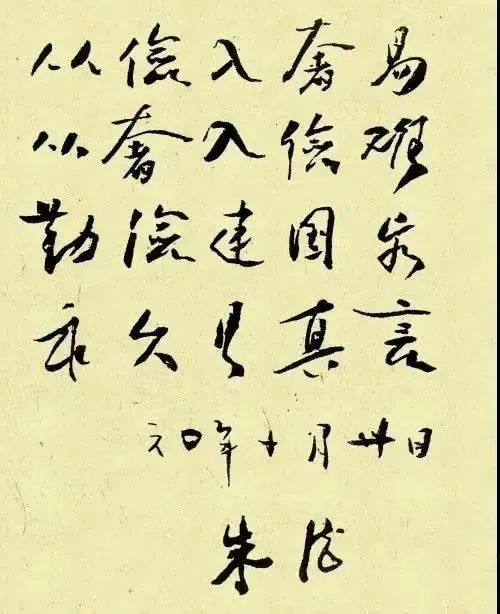 从俭入奢易
从奢入俭难
勤俭建国家
永久是真言
六〇年十月廿日
朱德